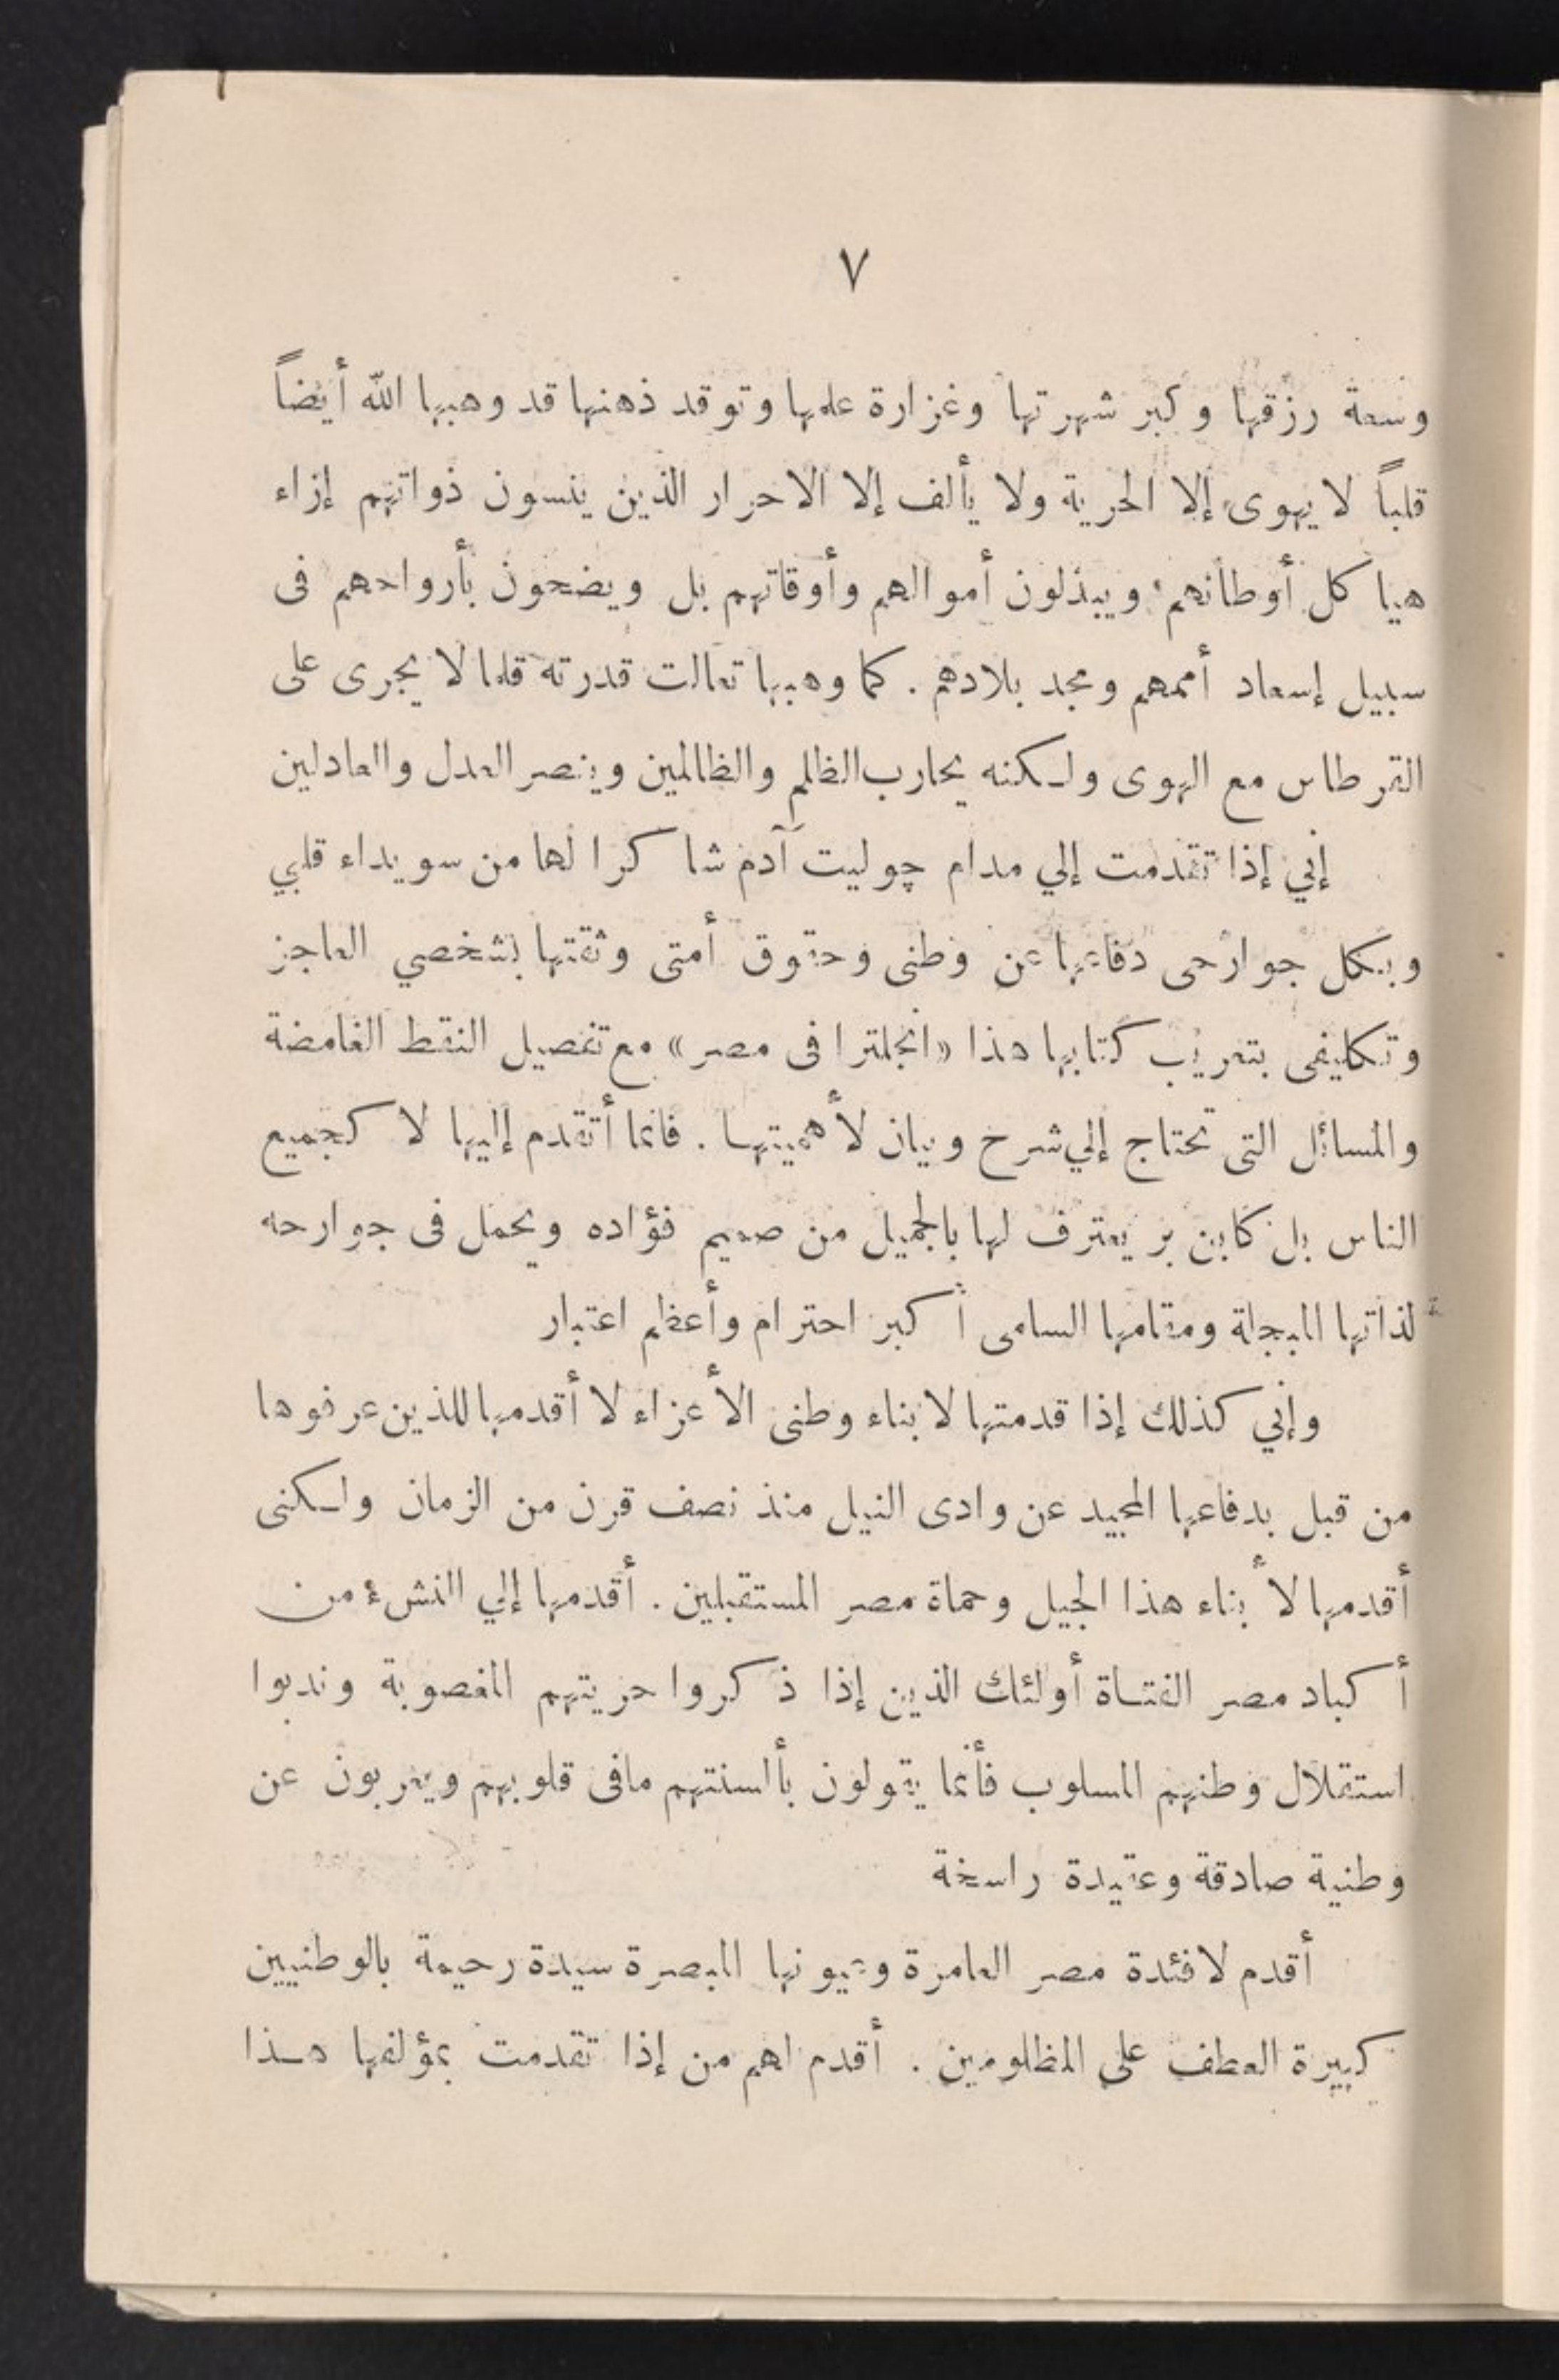 ٧
وسعة رزقها وكبر شهرتها وغزارة علمها وتوقد ذهنها قد وهبها الله أيضاً
قلباً لا يهوى إلا الحرية ولا يألف إلا الاحرار الذين ينسون ذواتهم إزاء
هياكل أوطانهم ويبذلون أموالهم وأوقاتهم بل ويضحون بأرواحهم فى
سبيل إسعاد أممهم ومجد بلادهم . كما وهبها تعالت قدرته قلما لا يجرى على
القرطاس مع الهوى ولكنه يحارب الظلم والظالمين وينصر العدل والعادلين
إني إذا تقدمت إلي مدام چوليت آدم شاكرا لها من سويداء قلبي
وبكل جوارحى دفاعها عن وطنى وحقوق أمتى وثقتها بشخصي العاجز
وتكليفى بتعريب كتابها هذا «انجلترا فى مصر» مع تفصيل النقط الغامضة
والمسائل التى تحتاج إلي شرح وبيان لأهميتها . فانما أتقدم إليها لا كجميع
الناس بل كابن بر يعترف لها بالجميل من صميم فؤاده ويحمل فى جوارحه
لذاتها المبجلة ومقامها السامى أكبر احترام وأعظم اعتبار
وإني كذلك إذا قدمتها لابناء وطنى الأعزاء لا أقدمها للذين عرفوها
من قبل بدفاعها المجيد عن وادى النيل منذ نصف قرن من الزمان ولكنى
أقدمها لأبناء هذا الجيل وحماة مصر المستقبلين . أقدمها إلي النشء من
أكباد مصر الفتاة أولئك الذين إذا ذكروا حريتهم المغصوبة وندبوا
استقلال وطنهم المسلوب فأنما يقولون بألسنتهم مافى قلوبهم ويعربون عن
وطنية صادقة وعقيدة راسخة
أقدم لافئدة مصر العامرة وعيونها المبصرة سيدة رحيمة بالوطنيين
كبيرة العطف على المظلومين . أقدم لهم من إذا تقدمت بمؤلفها هذا